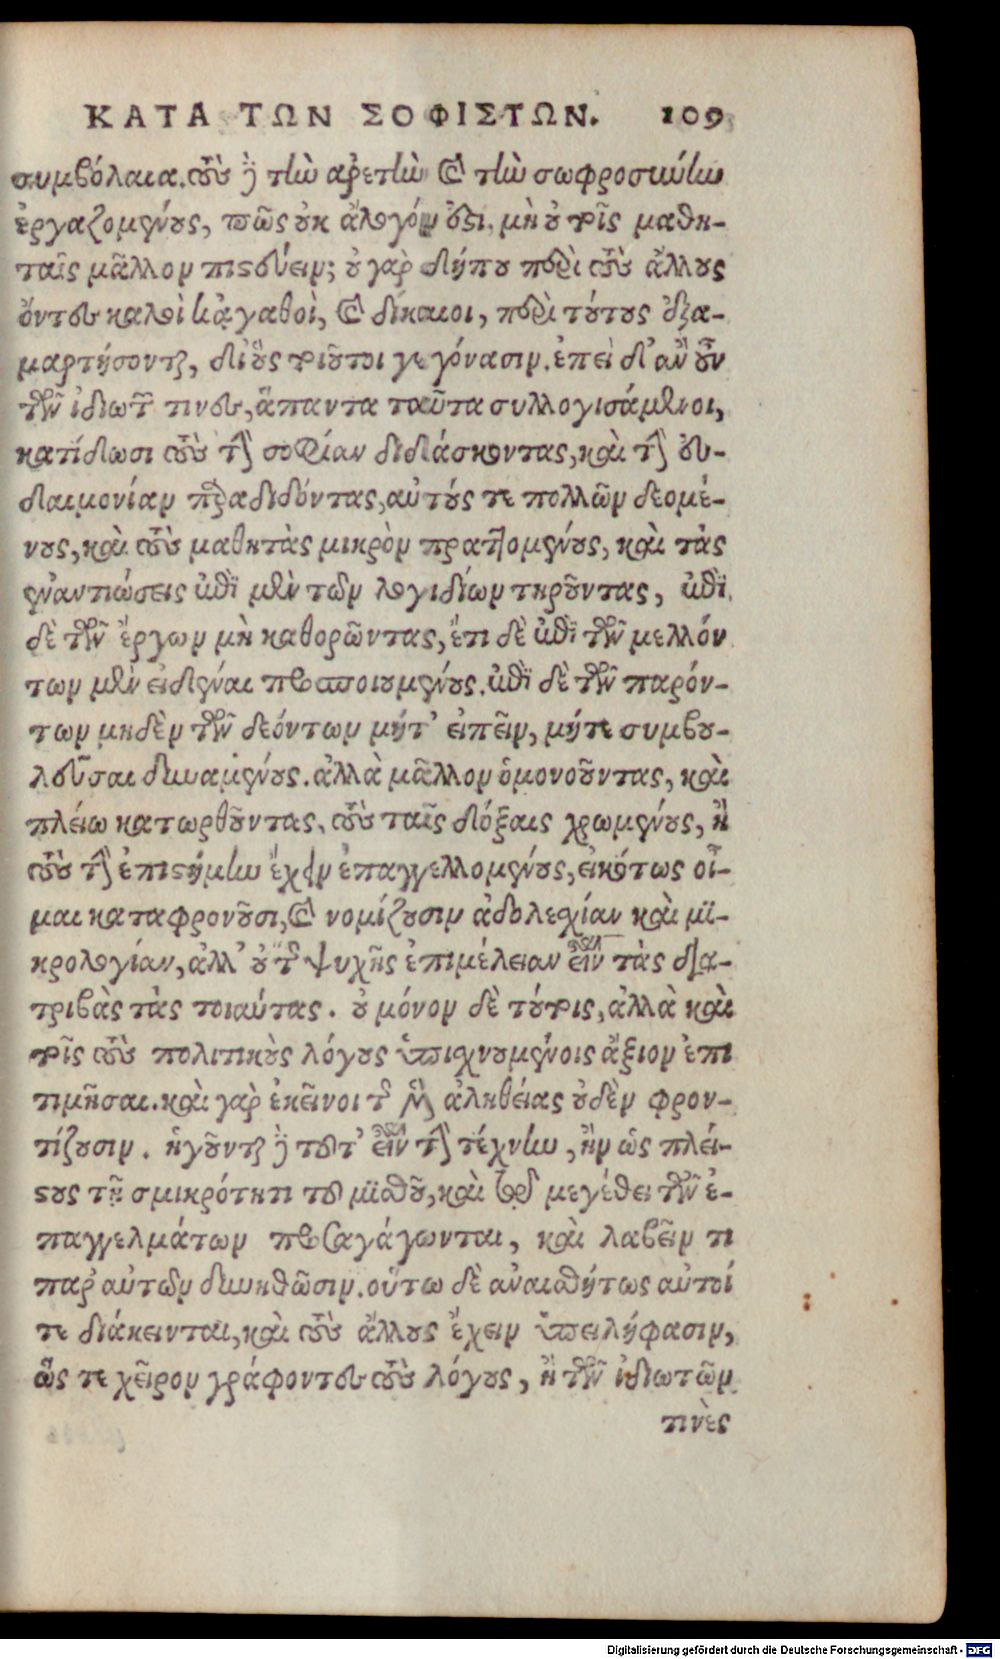 ΚΑΤΑ ΤΩΝ ΣΟΦΙΣΤΩΝ. 109
συμβόλαια. τοὺς δὲ τὴν ἀρετὴν καὶ τὴν σωφροσύνην
ἐργαζομένους, πῶς οὐκ ἄλογόν ἐστι, μὴ οὐ τοῖς μαθη-
ταῖς μᾶλλον πιστεύειν; οὐ γὰρ δήπου περὶ τοὺς ἄλλους
ὄντες καλοὶ κἀγαθοὶ, καὶ δίκαιοι, περὶ τούτους ἐξα-
μαρτήσονται, δι' οὓς τοιοῦτοι γεγόνασιν. ἐπεὶ δ' ἂν οὖν
τῶν ἰδιωτῶν τινες, ἅπαντα ταῦτα συλλογισάμενοι,
κατίδωσι τοὺς τὴν σοφίαν διδάσκοντας, καὶ τὴν εὐ-
δαιμονίαν παραδιδόντας, αὐτούς τε πολλῶν δεομέ-
νους, καὶ τοὺς μαθητὰς μικρὸν πραττομένους, καὶ τὰς
ἐναντιώσεις ἐπὶ μὲν τῶν λογιδίων τηροῦντας, ἐπὶ
δὲ τῶν ἔργων μὴ καθορῶντας, ἔτι δὲ ἐπὶ τῶν μελλόν
των μὲν εἰδέναι προσποιουμένους. ἐπὶ δὲ τῶν παρόν-
των μηδὲν τῶν δεόντων μήτ' εἰπεῖν, μήτε συμβου-
λεῦσαι δυναμένους. ἀλλὰ μᾶλλον ὁμονοοῦντας, καὶ
πλείω κατωρθοῦντας, τοὺς ταῖς δόξαις χρωμένους, ἢ
τοὺς τὴν ἐπιστήμην ἔχειν ἐπαγγελλομένους, εἰκότως οἶ-
μαι καταφρονοῦσι, καὶ νομίζουσιν ἀδολεσχίαν καὶ μι-
κρολογίαν, ἀλλ' οὐ τῆς ψυχῆς ἐπιμέλειαν εἶναι τὰς δια-
τριβὰς τὰς τοιαύτας. οὐ μόνον δὲ τούτοις, ἀλλὰ καὶ
τοῖς τοὺς πολιτικοὺς λόγους ὑπισχνουμένοις ἄξιον ἐπι
τιμῆσαι. καὶ γὰρ ἐκεῖνοι τῆς μὲν ἀληθείας οὐδὲν φρον-
τίζουσιν. ἡγοῦνται δὲ τοῦτ' εἶναι τὴν τέχνην, ἢν ὡς πλεί-
στους τῇ σμικρότητι τοῦ μισθοῦ, καὶ τῷ μεγέθει τῶν ἐ-
παγγελμάτων προσαγάγωνται, καὶ λαβεῖν τι
παρ' αὐτῶν δυνηθῶσιν. οὕτω δὲ ἀναισθήτως αὐτοί
τε διάκεινται, καὶ τοὺς ἄλλους ἔχειν ὑπειλήφασιν,
ὥς τε χεῖρον γράφοντες τοὺς λόγους, ἢ τῶν ἰδιωτῶν
τινὲς
Digitalisierung gefördert durch die Deutsche Forschungsgemeinschaft - DFG